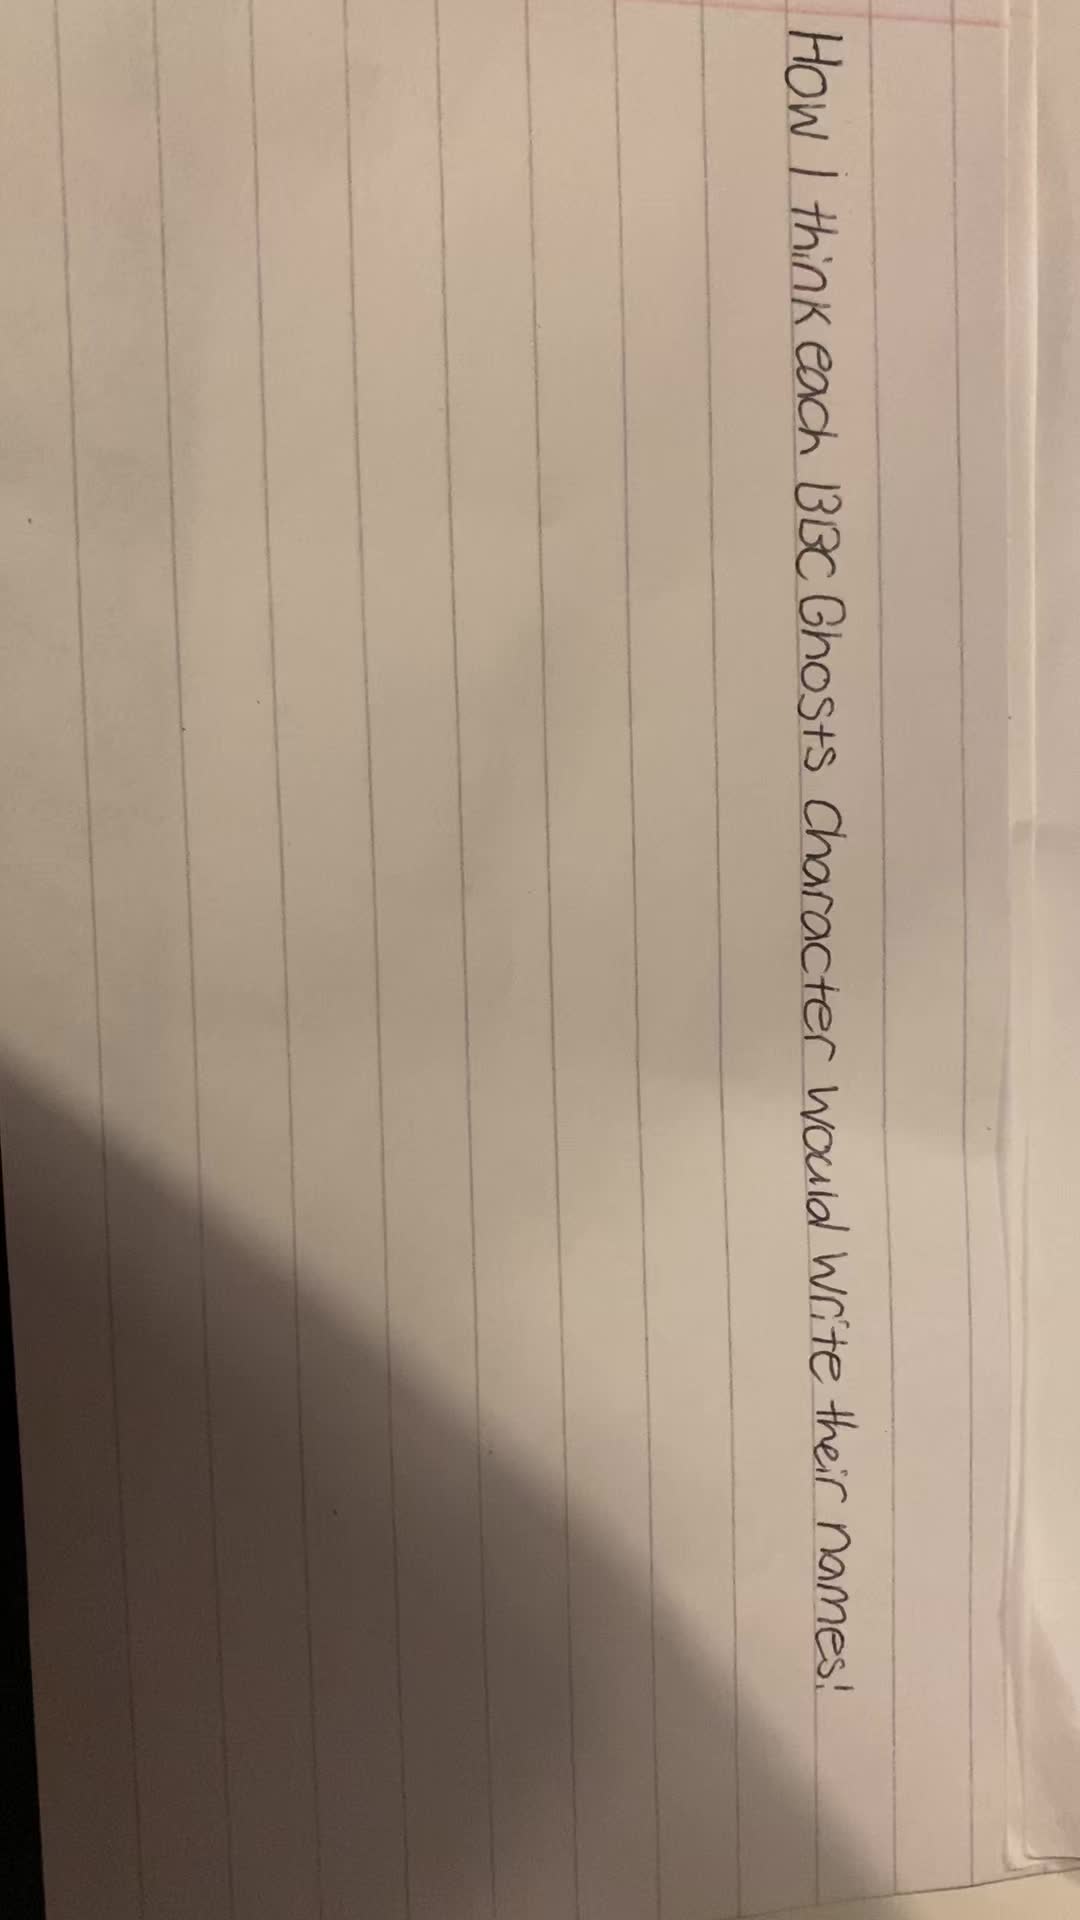 How I think each BBC Ghosts character would write their names!